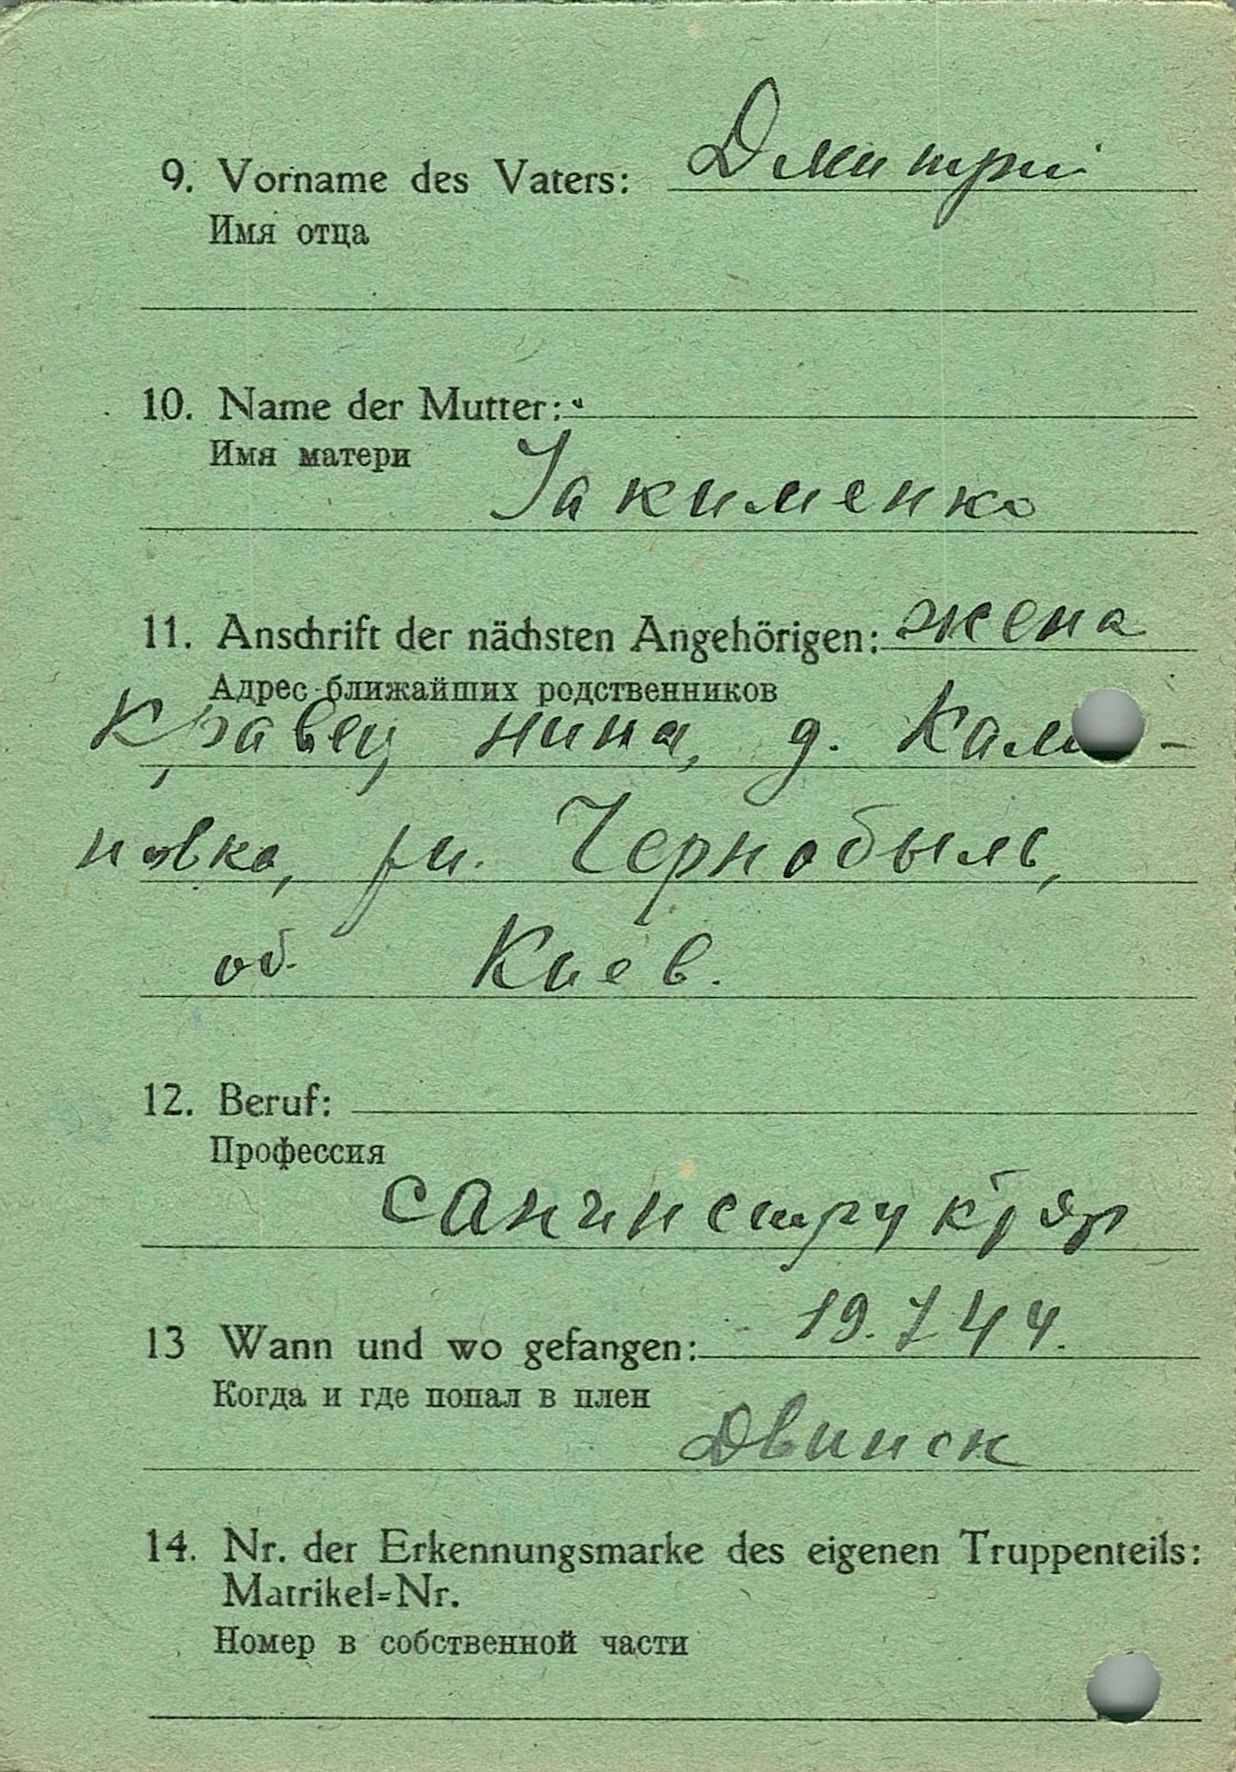 9. Vorname des Vaters: Дмитрий
Имя отца
10. Name der Mutter:
Имя матери
Якименко
11. Anschrift der nächsten Angehörigen: жена
Адрес ближайших родственников
Кравец нина, д. Кали-
новка, рн. Чернобыль,
об. Киев.
12. Beruf:
Профессия
санинструктор
13 Wann und wo gefangen: 19.7.44.
Когда и где попал в плен
Двинск
14. Nr. der Erkennungsmarke des eigenen Truppenteils:
Matrikel=Nr.
Номер в собственной части